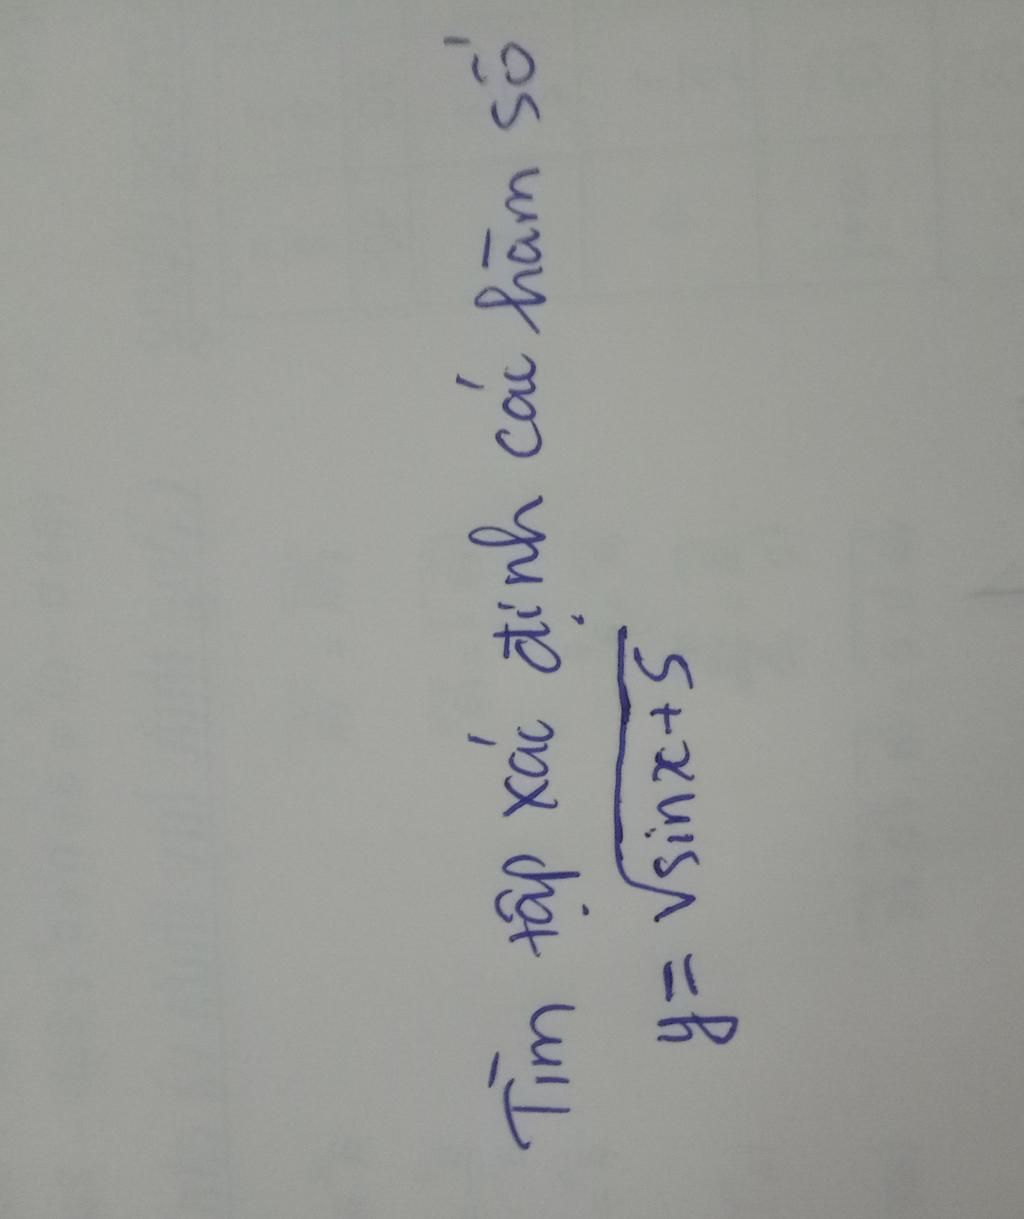 Tìm tập xác định các hàm số
y = √sinx+5